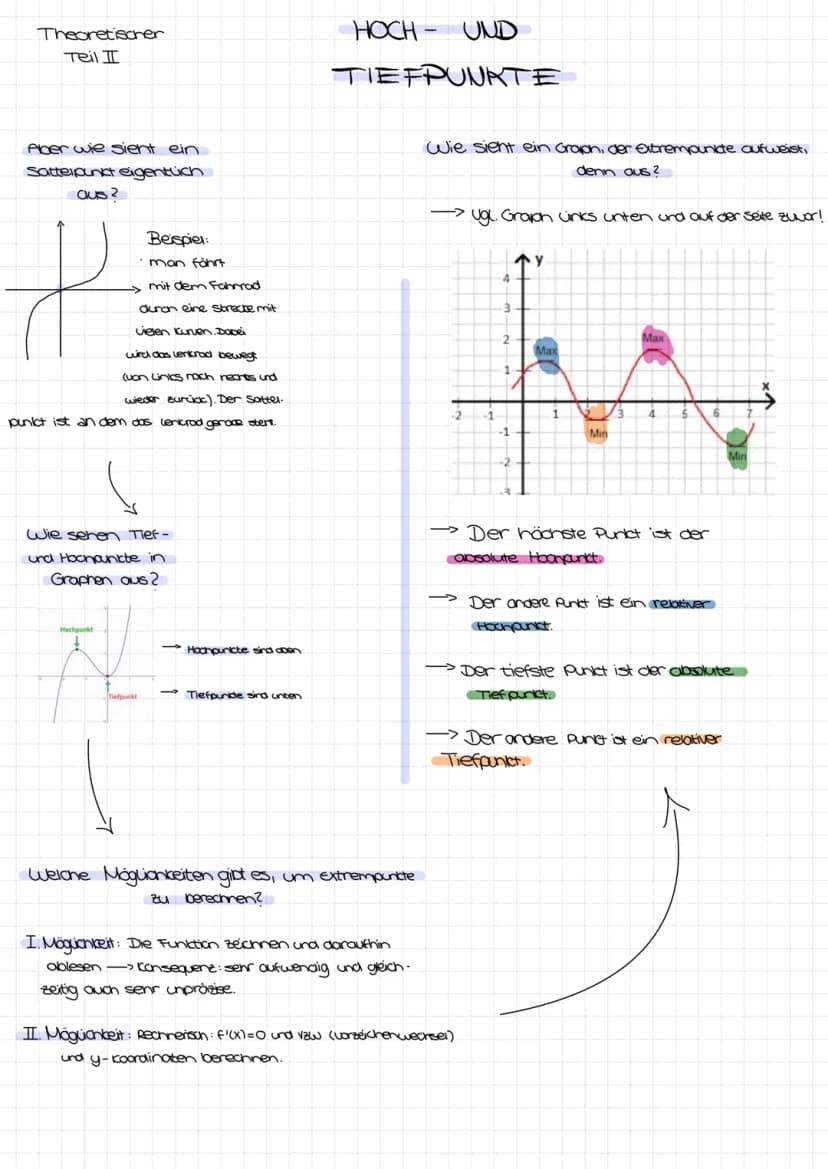 Theoretischer
Teil II
HOCH- UND
TIEFPUNKTE
Aber wie sieht ein
Sattelpunkt eigentlich
aus?
Beispiel:
man fährt
mit dem Fahrrad
durch eine Strecke mit
vielen Kurven. Dabei
wird das Lenkrad bewegt
(von links nach rechts und
wieder zurück). Der Sattel-
punkt ist an dem das Lenkrad gerade steht.
Wie sehen Tief-
und Hochpunkte in
Graphen aus?
Hochpunkt
Tiefpunkt
→ Hochpunkte sind oben
→ Tiefpunkte sind unten
Welche Möglichkeiten gibt es, um Extrempunkte
zu berechnen?
I. Möglichkeit: Die Funktion zeichnen und daraufhin
ablesen → Konsequenz: sehr aufwendig und gleich-
zeitig auch sehr unpräzise.
II. Möglichkeit: Rechnerisch: f'(x)=0 und VZW (Vorzeichenwechsel)
und y-Koordinaten berechnen.
Wie sieht ein Graph, der Extrempunkte aufweist,
denn aus?
→ Vgl. Graph links unten und auf der Seite zuvor!
y
4
3
2
1
Max
Max
x
-2 -1 1 2 3 4 5 6 7
-1
Min
-2
Min
-3
→ Der höchste Punkt ist der
absolute Hochpunkt.
→ Der andere Punkt ist ein relativer
Hochpunkt.
→ Der tiefste Punkt ist der absolute
Tiefpunkt.
→ Der andere Punkt ist ein relativer
Tiefpunkt.